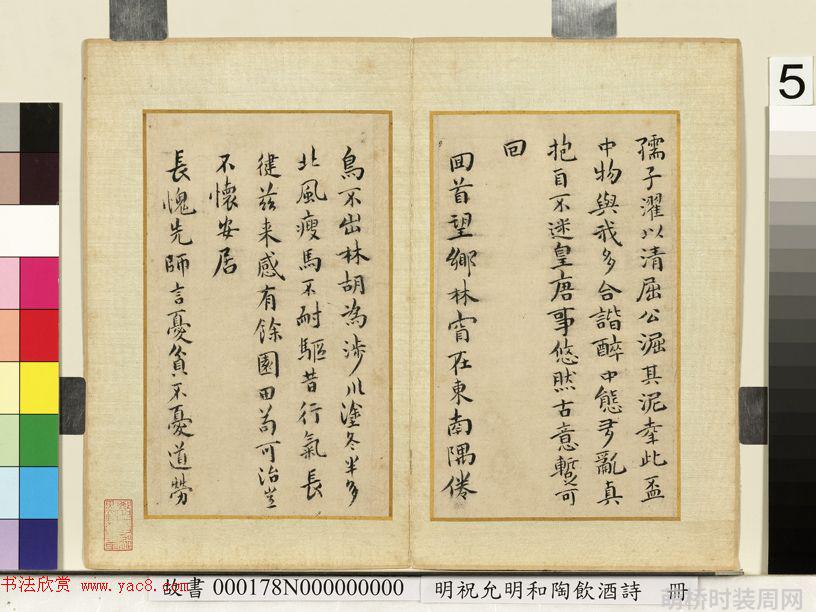 孺子濯以清屈公淈其泥幸此盃
中物與我多合諧醉中態亂真
抱自不迷皇唐事悠然古意暫可
回
回首望鄉林窅在東南隅倦
鳥不出林胡為涉川塗冬半多
北風瘦馬不耐驅昔行氣長
健茲来感有餘園田苟可治豈
不懷安居
長愧先師言憂貧不憂道勞
5
书法欣赏 www.yac8.com
故書 000178N000000000
明祝允明和陶飲酒詩 冊
萌桥时装周网